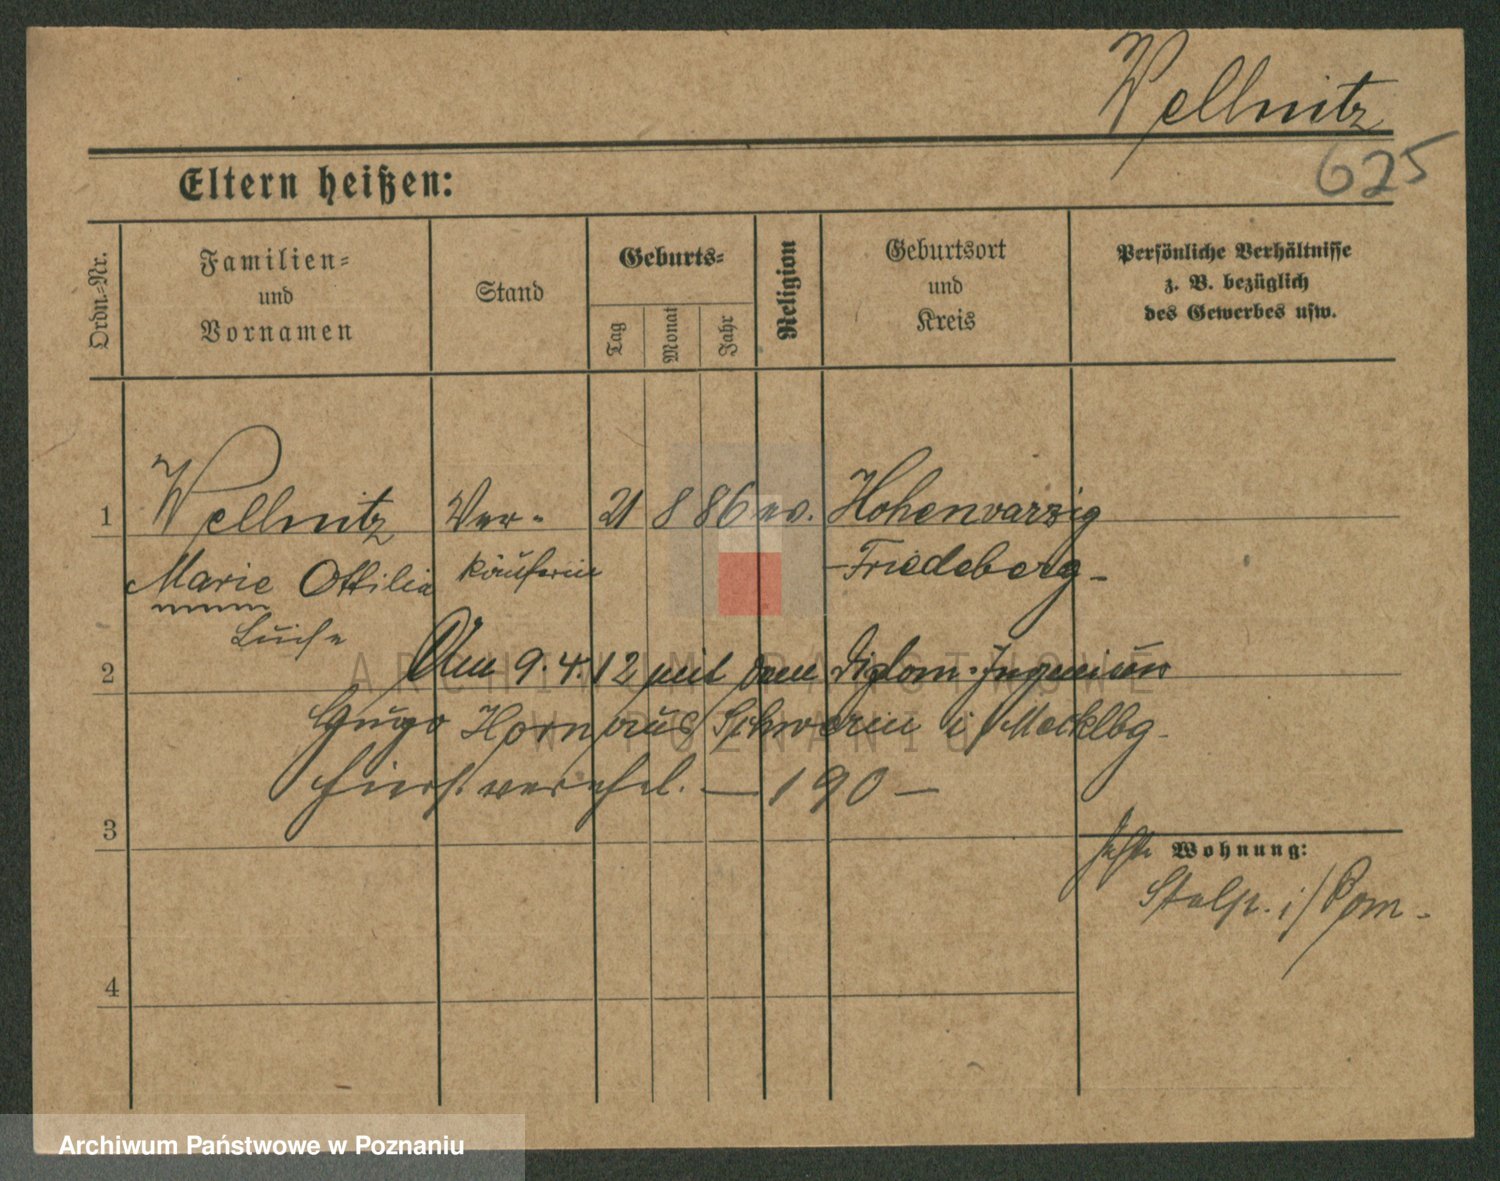 Wellnitz
625
Eltern heißen:
Ordn.-Nr.
Familien-
und
Vornamen
Stand
Geburts-
Tag
Monat
Jahr
Religion
Geburtsort
und
Kreis
Persönliche Verhältnisse
z. B. bezüglich
des Gewerbes usw.
1 Wellnitz Ver- 21 8 86 ev. Hohenvarzig
Marie Ottilie käuferin -Friedeberg-
Luise
2 Am 9.4.12 mit dem Diplom-Ingenieur
Hugo Horn aus Schwerin i/Mecklbg.
hier verehel. — 190 —
3
Wohnung:
Stolp. i/Pom-
4
ARCHIWUM PAŃSTWOWE
W POZNANIU
Archiwum Państwowe w Poznaniu